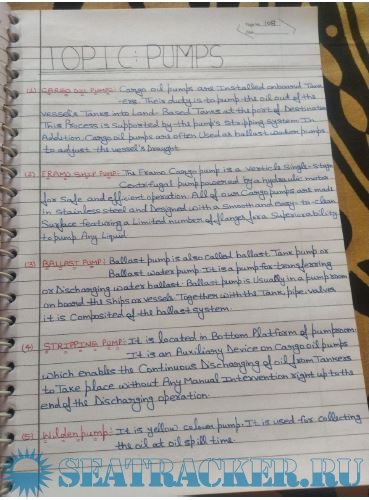 TOPIC: PUMPS
(1) CARGO OIL PUMPS: Cargo oil pumps are Installed onboard Tank
-ers. Their duty is to pump the oil out of the
vessel's Tanks into Land-Based Tanks at the port of Destination
This Process is Supported by the pump's Stripping System. In
Addition. Cargo oil pumps are often Used as ballast water pumps
to adjust the vessel's Draught.
(2) FRAMO SHIP PUMP: The Framo Cargo pump is a Verticle Single-stage
Centrifugal pump powered by a hydraulic motor
for Safe and efficient operation. All of our Cargo pumps are made
in Stainless steel and Designed with a Smooth and easy-to-clean
Surface featuring a Limited number of flanges for a Superior ability
to pump Any Liquid.
(3) BALLAST PUMP: Ballast pump is also called ballast Tank pump or
Ballast water pump. It is a pump for transferring
or Discharging water ballast. Ballast pump is Usually in a pump room
on board the ships or vessel. Together with the Tank, pipe, valves
it is Composited of the ballast system.
(4) STRIPPING PUMP: It is located in Bottom Platform of pumproom.
It is an Auxiliary Device on Cargo oil pumps
which enables the Continuous Discharging of oil from Tankers
to Take place without Any Manual Intervention right up to the
end of the Discharging operation.
(5) Wilden pump: It is yellow colour pump. It is used for collecting
the oil at oil spill time.
SEATRACKER.RU